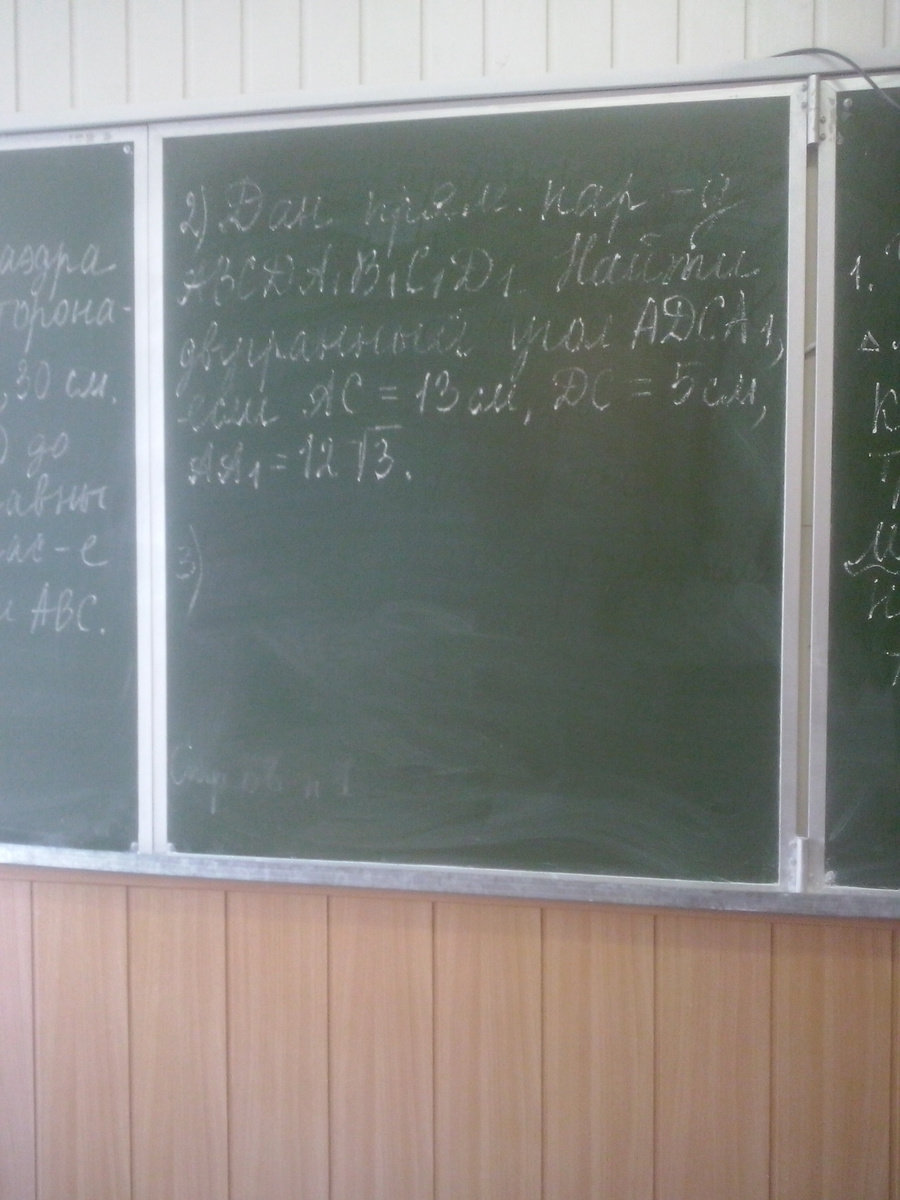 аэдра
торона-
30 см.
до
авны
ас-е
ABC.
2) Дан прям. пар-д
ABCDA₁B₁C₁D₁. Найти
двугранный угол ADCA₁,
если AC = 13 см, DC = 5 см,
AA₁ = 12√3.
3)
1.